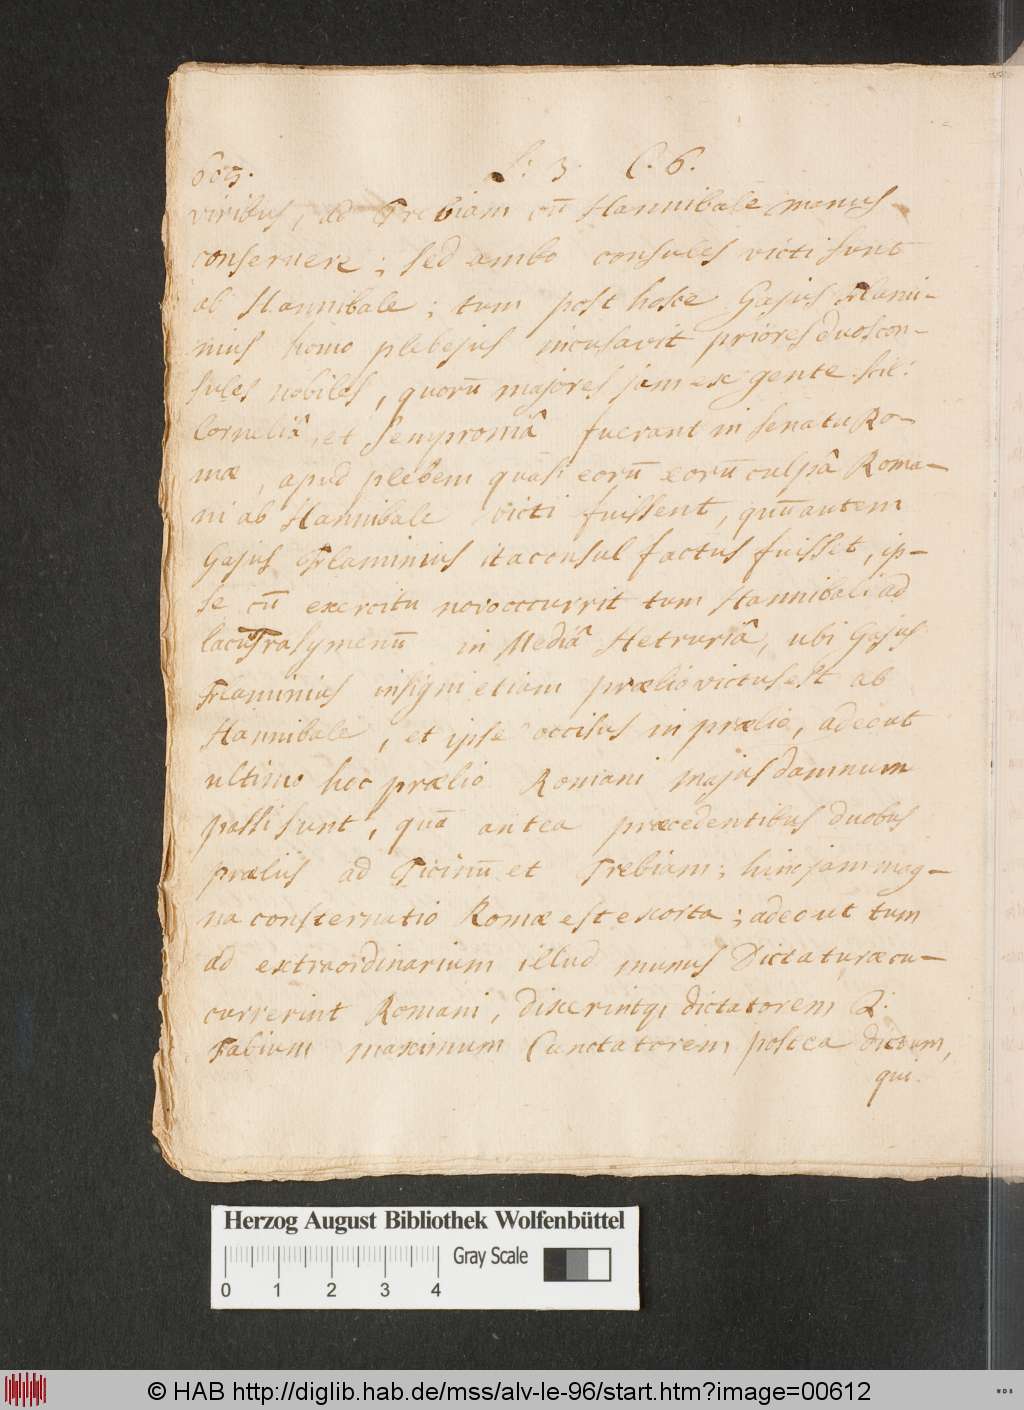 603. L: 3. C. 6.
viribus, ad Trebiam cū Hannibale manus
conseruere; sed ambo consules victi sunt
ab Hannibale; tum post hosce Gajus Flami-
nius homo plebejus incusavit priores duos con-
sules nobiles, quorū majores jam ex gente scil:
Corneliâ et Semproniâ fuerant in senatu Ro-
mæ, apud plebem quasi eorū eorū culpâ Roma-
ni ab Hannibale victi fuissent, quū autem
Gajus Flaminius ita consul factus fuisset, ip-
se cū exercitu novo occurrit tum Hannibali ad
lacū Trasymenū in Mediâ Hetruriâ, ubi Gajus
Flaminius insigni etiam prælio victus est ab
Hannibale, et ipse occisus in prælio, adeo ut
ultimo hoc prælio Romani majus damnum
passi sunt, quā antea præcedentibus duobus
præliis ad Ticinū et Trebiam; hinc jam mag-
na consternatio Romæ est exorta; adeo ut tum
ad extraordinarium illud munus Dictaturæ cu-
currerint Romani, dixerintq, dictatorem Q:
Fabium maximum Cunctatorem postea dictum,
qui
Herzog August Bibliothek Wolfenbüttel
Gray Scale
0 1 2 3 4
© HAB http://diglib.hab.de/mss/alv-le-96/start.htm?image=00612